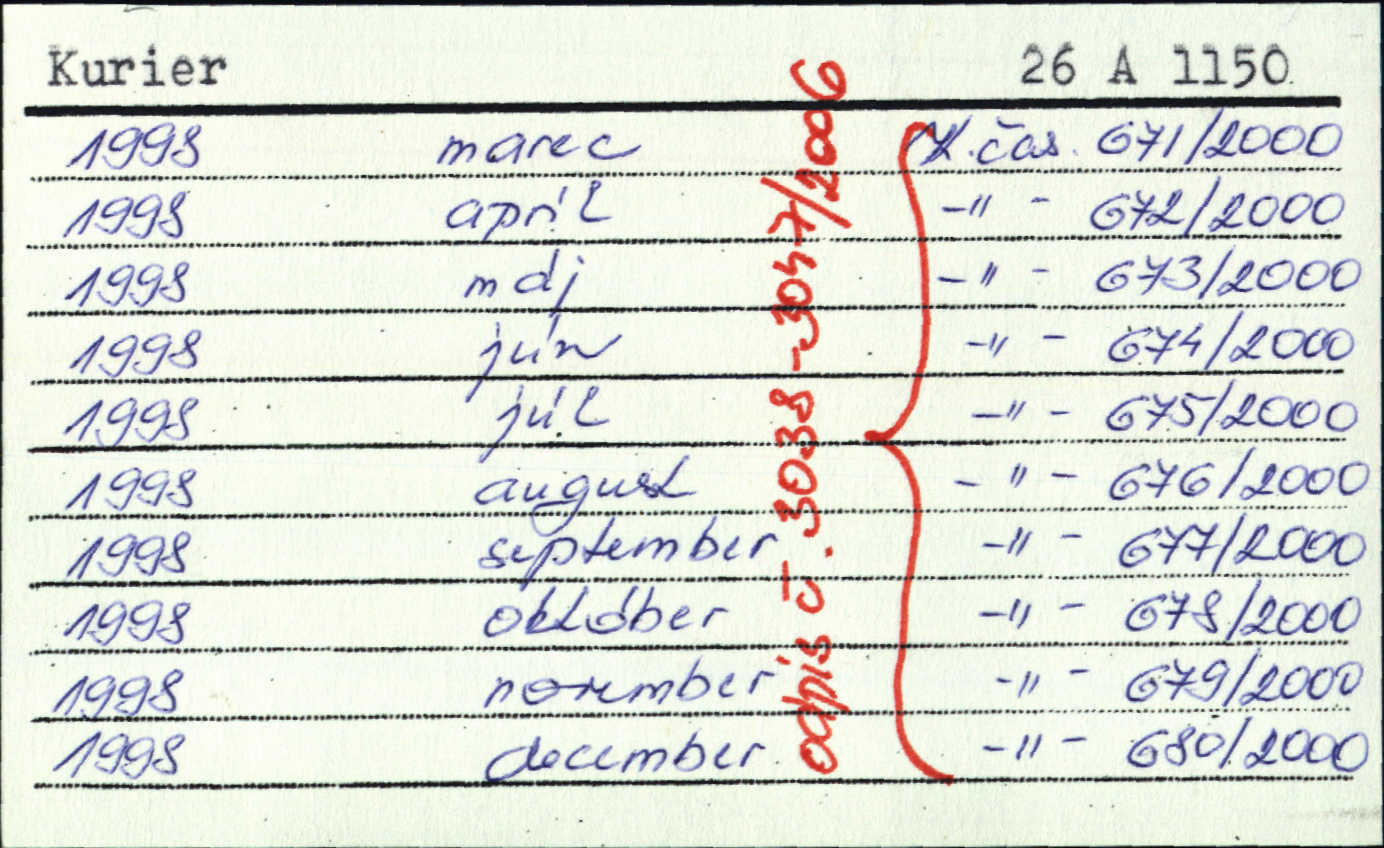 Kurier 26 A 1150
1998 marec čas. 671/2000
1998 apríl -"- 672/2000
1998 máj -"- 673/2000
1998 jún -"- 674/2000
1998 júl -"- 675/2000
1998 august -"- 676/2000
1998 september -"- 677/2000
1998 október -"- 678/2000
1998 november -"- 679/2000
1998 december -"- 680/2000
odpis č. 3038-3047/2006